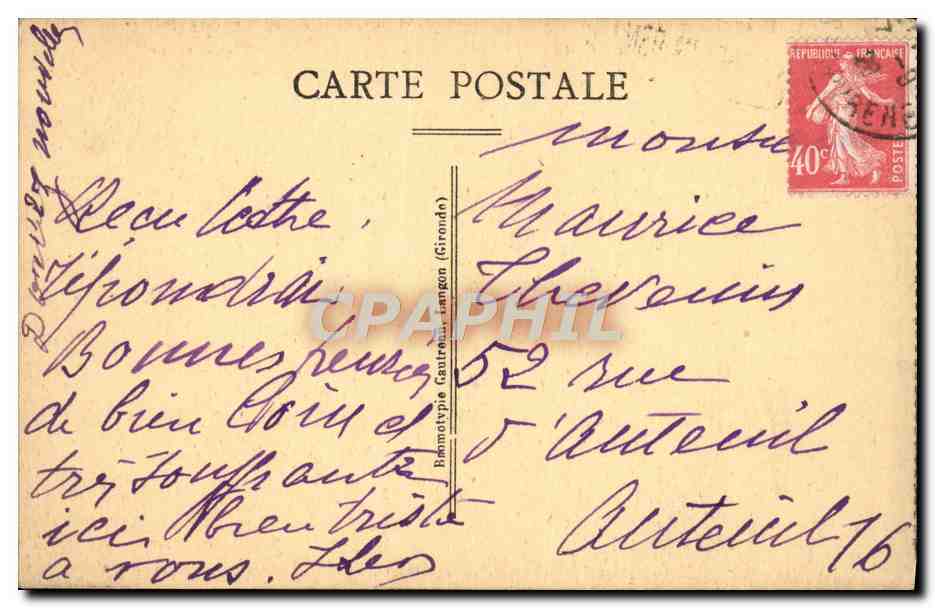 CARTE POSTALE
REPUBLIQUE FRANÇAISE
40c
POSTES
Donnez nouvelles
Reçu lettre,
répondrai
Bonnes pensées
de bien loin et
très souffrante
ici bien triste
a vous.
Monsieur
Maurice
Thevenin
52 rue
d'Auteuil
Auteuil 16
Bromotypie Gautreau, Langon (Gironde)
CPAPHIL